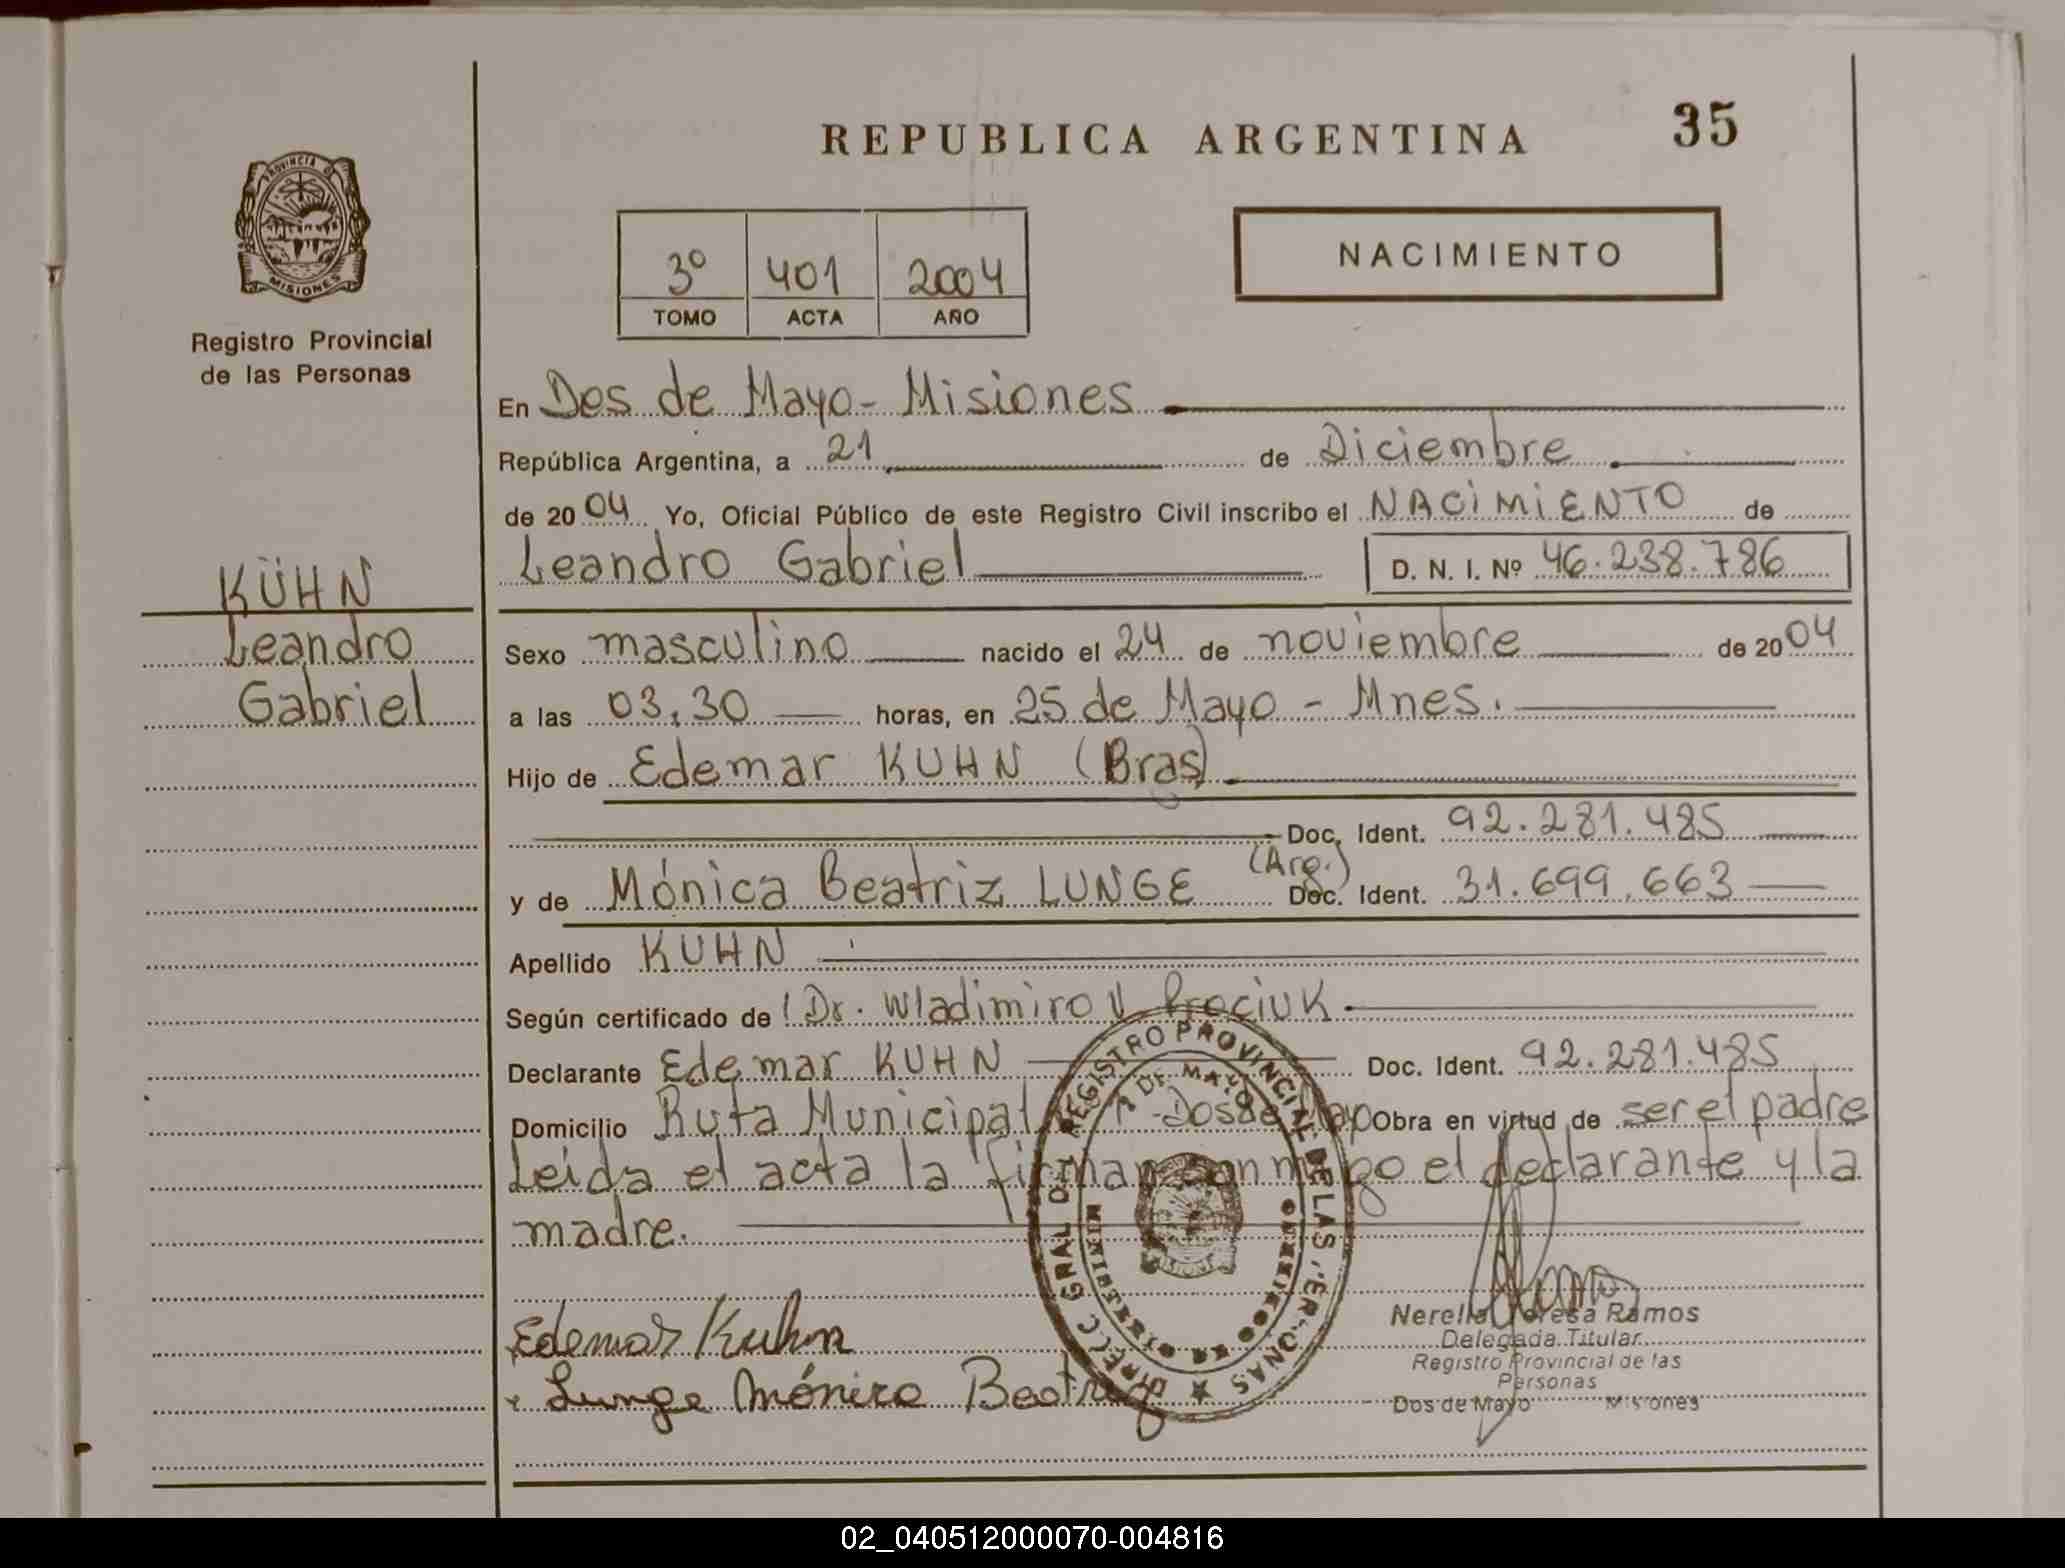 REPUBLICA ARGENTINA
35
PROVINCIA DE
MISIONES
Registro Provincial
de las Personas
3º 401 2004
TOMO ACTA AÑO
NACIMIENTO
En Dos de Mayo - Misiones
República Argentina, a 21 de Diciembre
de 2004 Yo, Oficial Público de este Registro Civil inscribo el NACIMIENTO de
Leandro Gabriel D. N. I. Nº 46.238.786
KÜHN
Leandro
Gabriel
Sexo masculino nacido el 24 de noviembre de 2004
a las 03,30 horas, en 25 de Mayo - Mnes.
Hijo de Edemar KUHN (Bras)
Doc. Ident. 92.281.485
y de Mónica Beatriz LUNGE (Arg.) Doc. Ident. 31.699.663
Apellido KUHN
Según certificado de Dr. Wladimiro Prociuk
Declarante Edemar KUHN Doc. Ident. 92.281.485
Domicilio Ruta Municipal Dos de Mayo Obra en virtud de ser el padre
Leída el acta la firman conmigo el declarante y la
madre.
Edemar Kuhn
Lunge Mónica Beatriz
DIRECC GRAL DEL REGISTRO PROVINCIAL DE LAS PERSONAS
2 DE MAYO
Nerella Teresa Ramos
Delegada Titular
Registro Provincial de las
Personas
Dos de Mayo Misiones
02_040512000070-004816